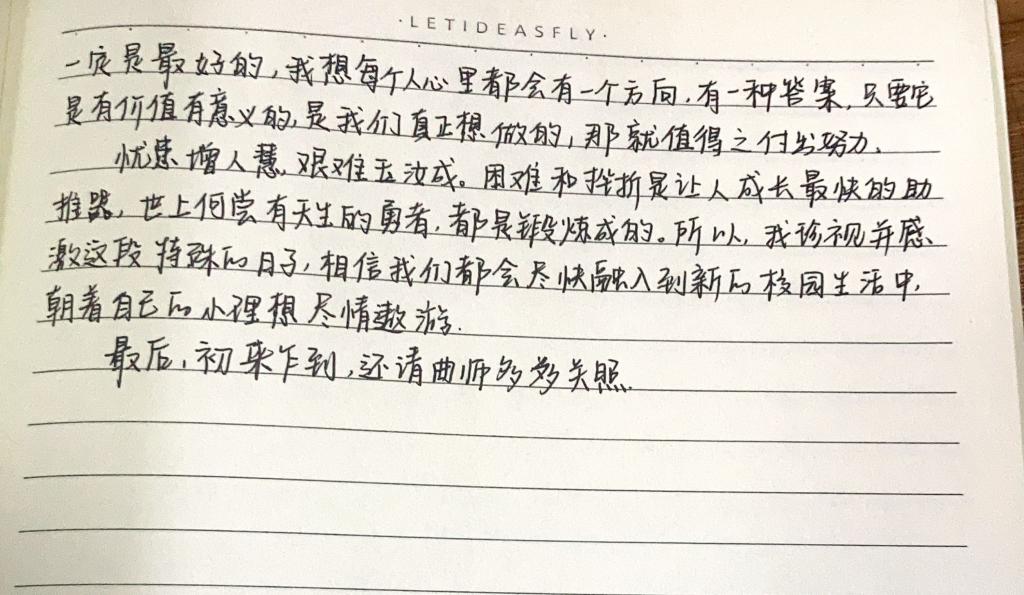 ·LETIDEASFLY·
一定是最好的,我想每个人心里都会有一个方向,有一种答案,只要它
是有价值有意义的,是我们真正想做的,那就值得之付出努力.
忧患增人慧,艰难玉汝成。困难和挫折是让人成长最快的助
推器,世上何尝有天生的勇者,都是锻炼成的。所以,我珍视并感
激这段特殊的日子,相信我们都会尽快融入到新的校园生活中,
朝着自己的小理想尽情遨游.
最后,初来乍到,还请曲师多多关照.